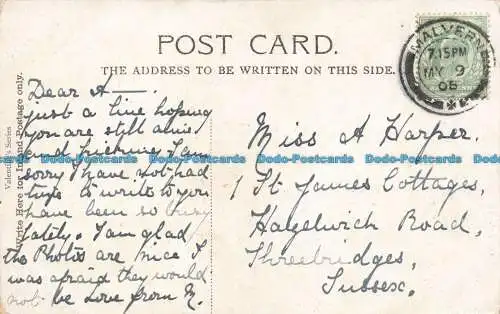 POST CARD.
THE ADDRESS TO BE WRITTEN ON THIS SIDE.
MALVERN
7.15PM
MY 9
06
Valentine's Series
Write Here for Inland Postage only.
Dear A—
just a line hoping
you are still alive
and kicking I am
sorry I have not had
time to write to you
have been so busy
lately. I am glad
the Photos are nice I
was afraid they would
not be Love from M.
Miss A Harper.
1 St. James Cottages,
Hazelwich Road,
Threebridges,
Sussex.
Dodo-Postcards Dodo-Postcards Dodo-Postcards Dodo-Postcards Dodo-Postcards